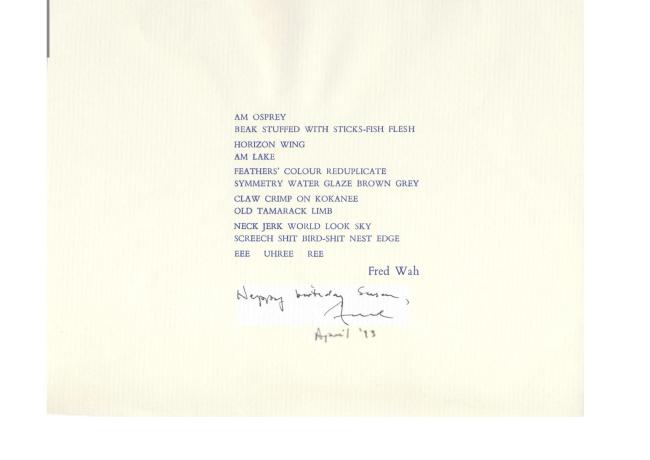 AM OSPREY
BEAK STUFFED WITH STICKS-FISH FLESH
HORIZON WING
AM LAKE
FEATHERS' COLOUR REDUPLICATE
SYMMETRY WATER GLAZE BROWN GREY
CLAW CRIMP ON KOKANEE
OLD TAMARACK LIMB
NECK JERK WORLD LOOK SKY
SCREECH SHIT BIRD-SHIT NEST EDGE
EEE UHREE REE
Fred Wah
Happy birthday Susan,
April '93